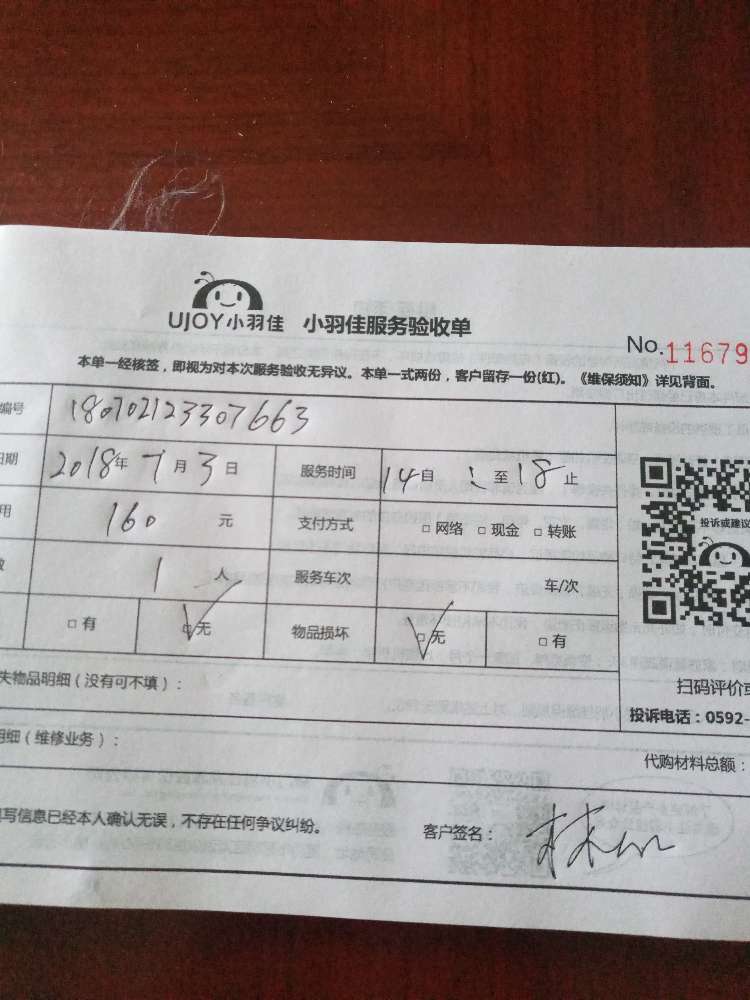 UJOY小羽佳 小羽佳服务验收单
No.11679
本单一经核签，即视为对本次服务验收无异议。本单一式两份，客户留存一份(红)。《维保须知》详见背面。
编号 180702123307663
日期 2018年 7月 3日 服务时间 14自 至18止
用 160 元 支付方式 □网络 □现金 □转账
数 1 人 服务车次 车/次
□有 □无 物品损坏 □无 □有
投诉或建议
扫码评价或
失物品明细（没有可不填）：
投诉电话：0592-
明细（维修业务）：
代购材料总额：
写信息已经本人确认无误，不存在任何争议纠纷。 客户签名：